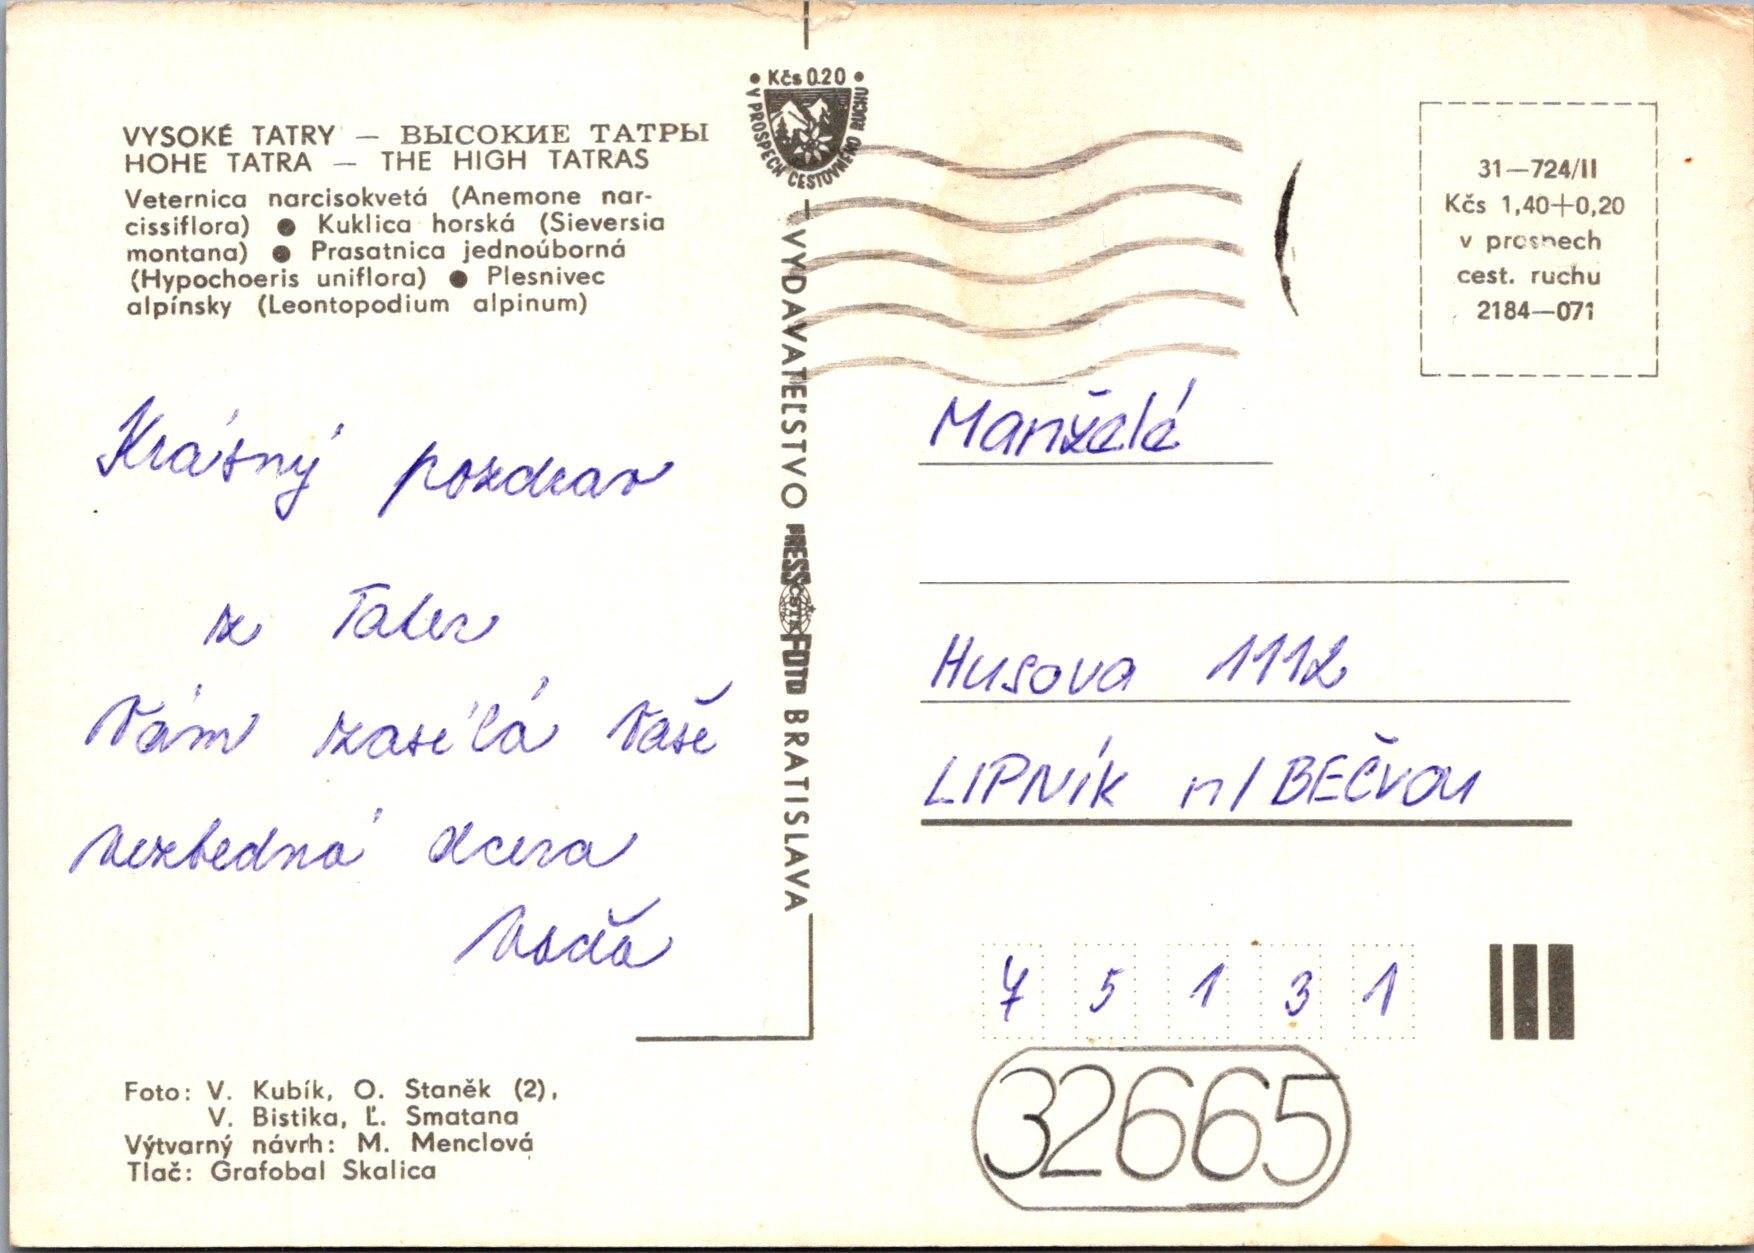 VYSOKÉ TATRY — ВЫСОКИЕ ТАТРЫ
HOHE TATRA — THE HIGH TATRAS
Veternica narcisokvetá (Anemone nar-
cissiflora) ● Kuklica horská (Sieversia
montana) ● Prasatnica jednoúborná
(Hypochoeris uniflora) ● Plesnivec
alpínsky (Leontopodium alpinum)
Krásný pozdrav
z Tater
Vám zasílá Vaše
nezbedná dcera
Foto: V. Kubík, O. Staněk (2),
V. Bistika, Ľ. Smatana
Výtvarný návrh: M. Menclová
Tlač: Grafobal Skalica
• Kčs 0.20 •
V PROSPECH CESTOVNÉHO RUCHU
VYDAVATEĽSTVO PRESSFOTO BRATISLAVA
ČSTK
31—724/II
Kčs 1,40+0,20
v prospech
cest. ruchu
2184—071
Manželé
Husova 1112
LIPNÍK n/BEČVOU
7 5 1 3 1
32665